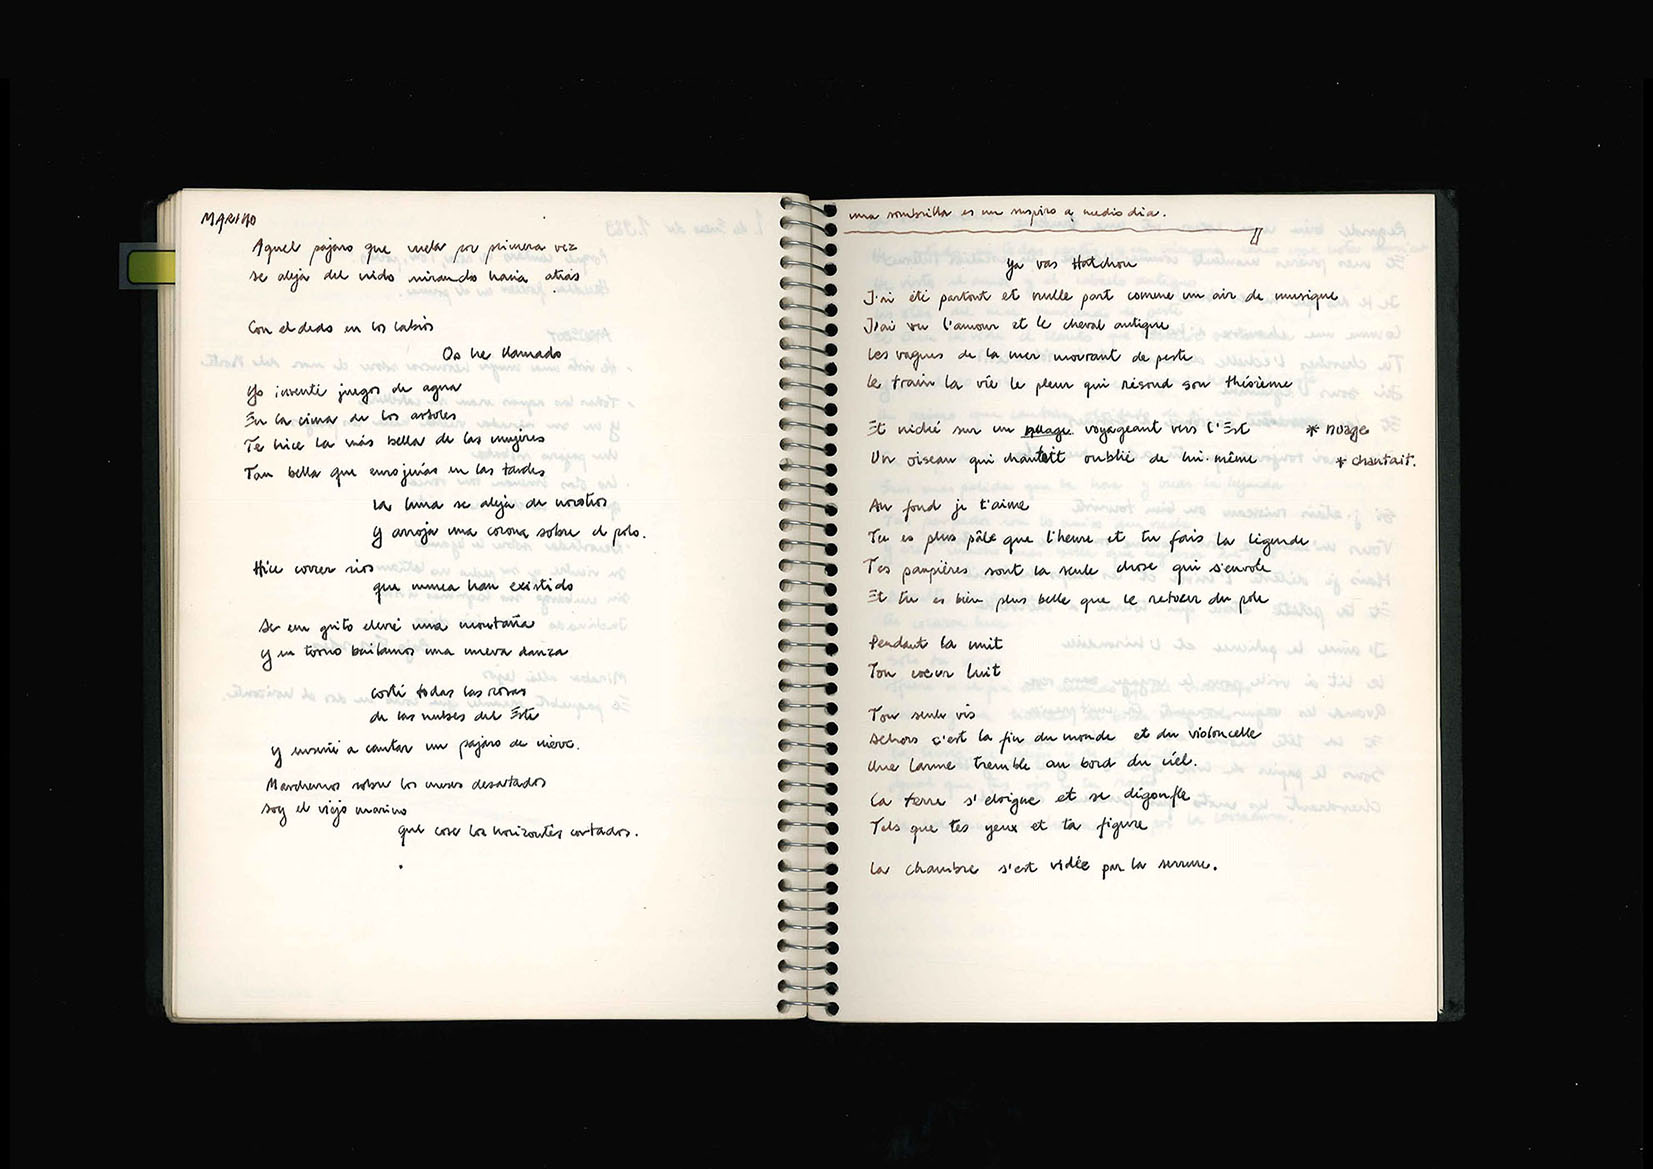 MARINO
Aquel pajaro que vuela por primera vez
se aleja del nido mirando hacia atras
Con el dedo en los labios
Os he llamado
Yo inventé juegos de agua
En la cima de los arboles
Te hice la más bella de las mujeres
Tan bella que enrojecias en las tardes
La luna se aleja de nosotros
Y arroja una corona sobre el polo.
Hice correr rios
que nunca han existido
De un grito elevé una montaña
Y en torno bailamos una nueva danza
corté todas las rosas
de las nubes del Este
Y enseñé a cantar un pajaro de nieve.
Marchemos sobre los meses desatados
soy el viejo marino
que cose los horizontes cortados.
una sombrilla es un suspiro a medio dia.
Ya vas Hatchou
J'ai été partout et nulle part comme un air de musique
J'ai vu l'amour et le cheval antique
Les vagues de la mer mourant de peste
le train la vie le pleur qui résoud son théorème
Et niché sur un nuage voyageant vers l'Est * nuage
Un oiseau qui chantait oublié de lui-même * chantait.
Au fond je t'aime
Tu es plus pâle que l'heure et tu fais la légende
Tes paupières sont la seule chose qui s'envole
Et tu es bien plus belle que le retour du pole
Pendant la nuit
Ton coeur luit
Ton seule vis
dehors c'est la fin du monde et du violoncelle
Une larme tremble au bord du ciel.
La terre s'eloigne et se dégonfle
Tels que tes yeux et ta figure
La chambre s'est vidée par la serrure.